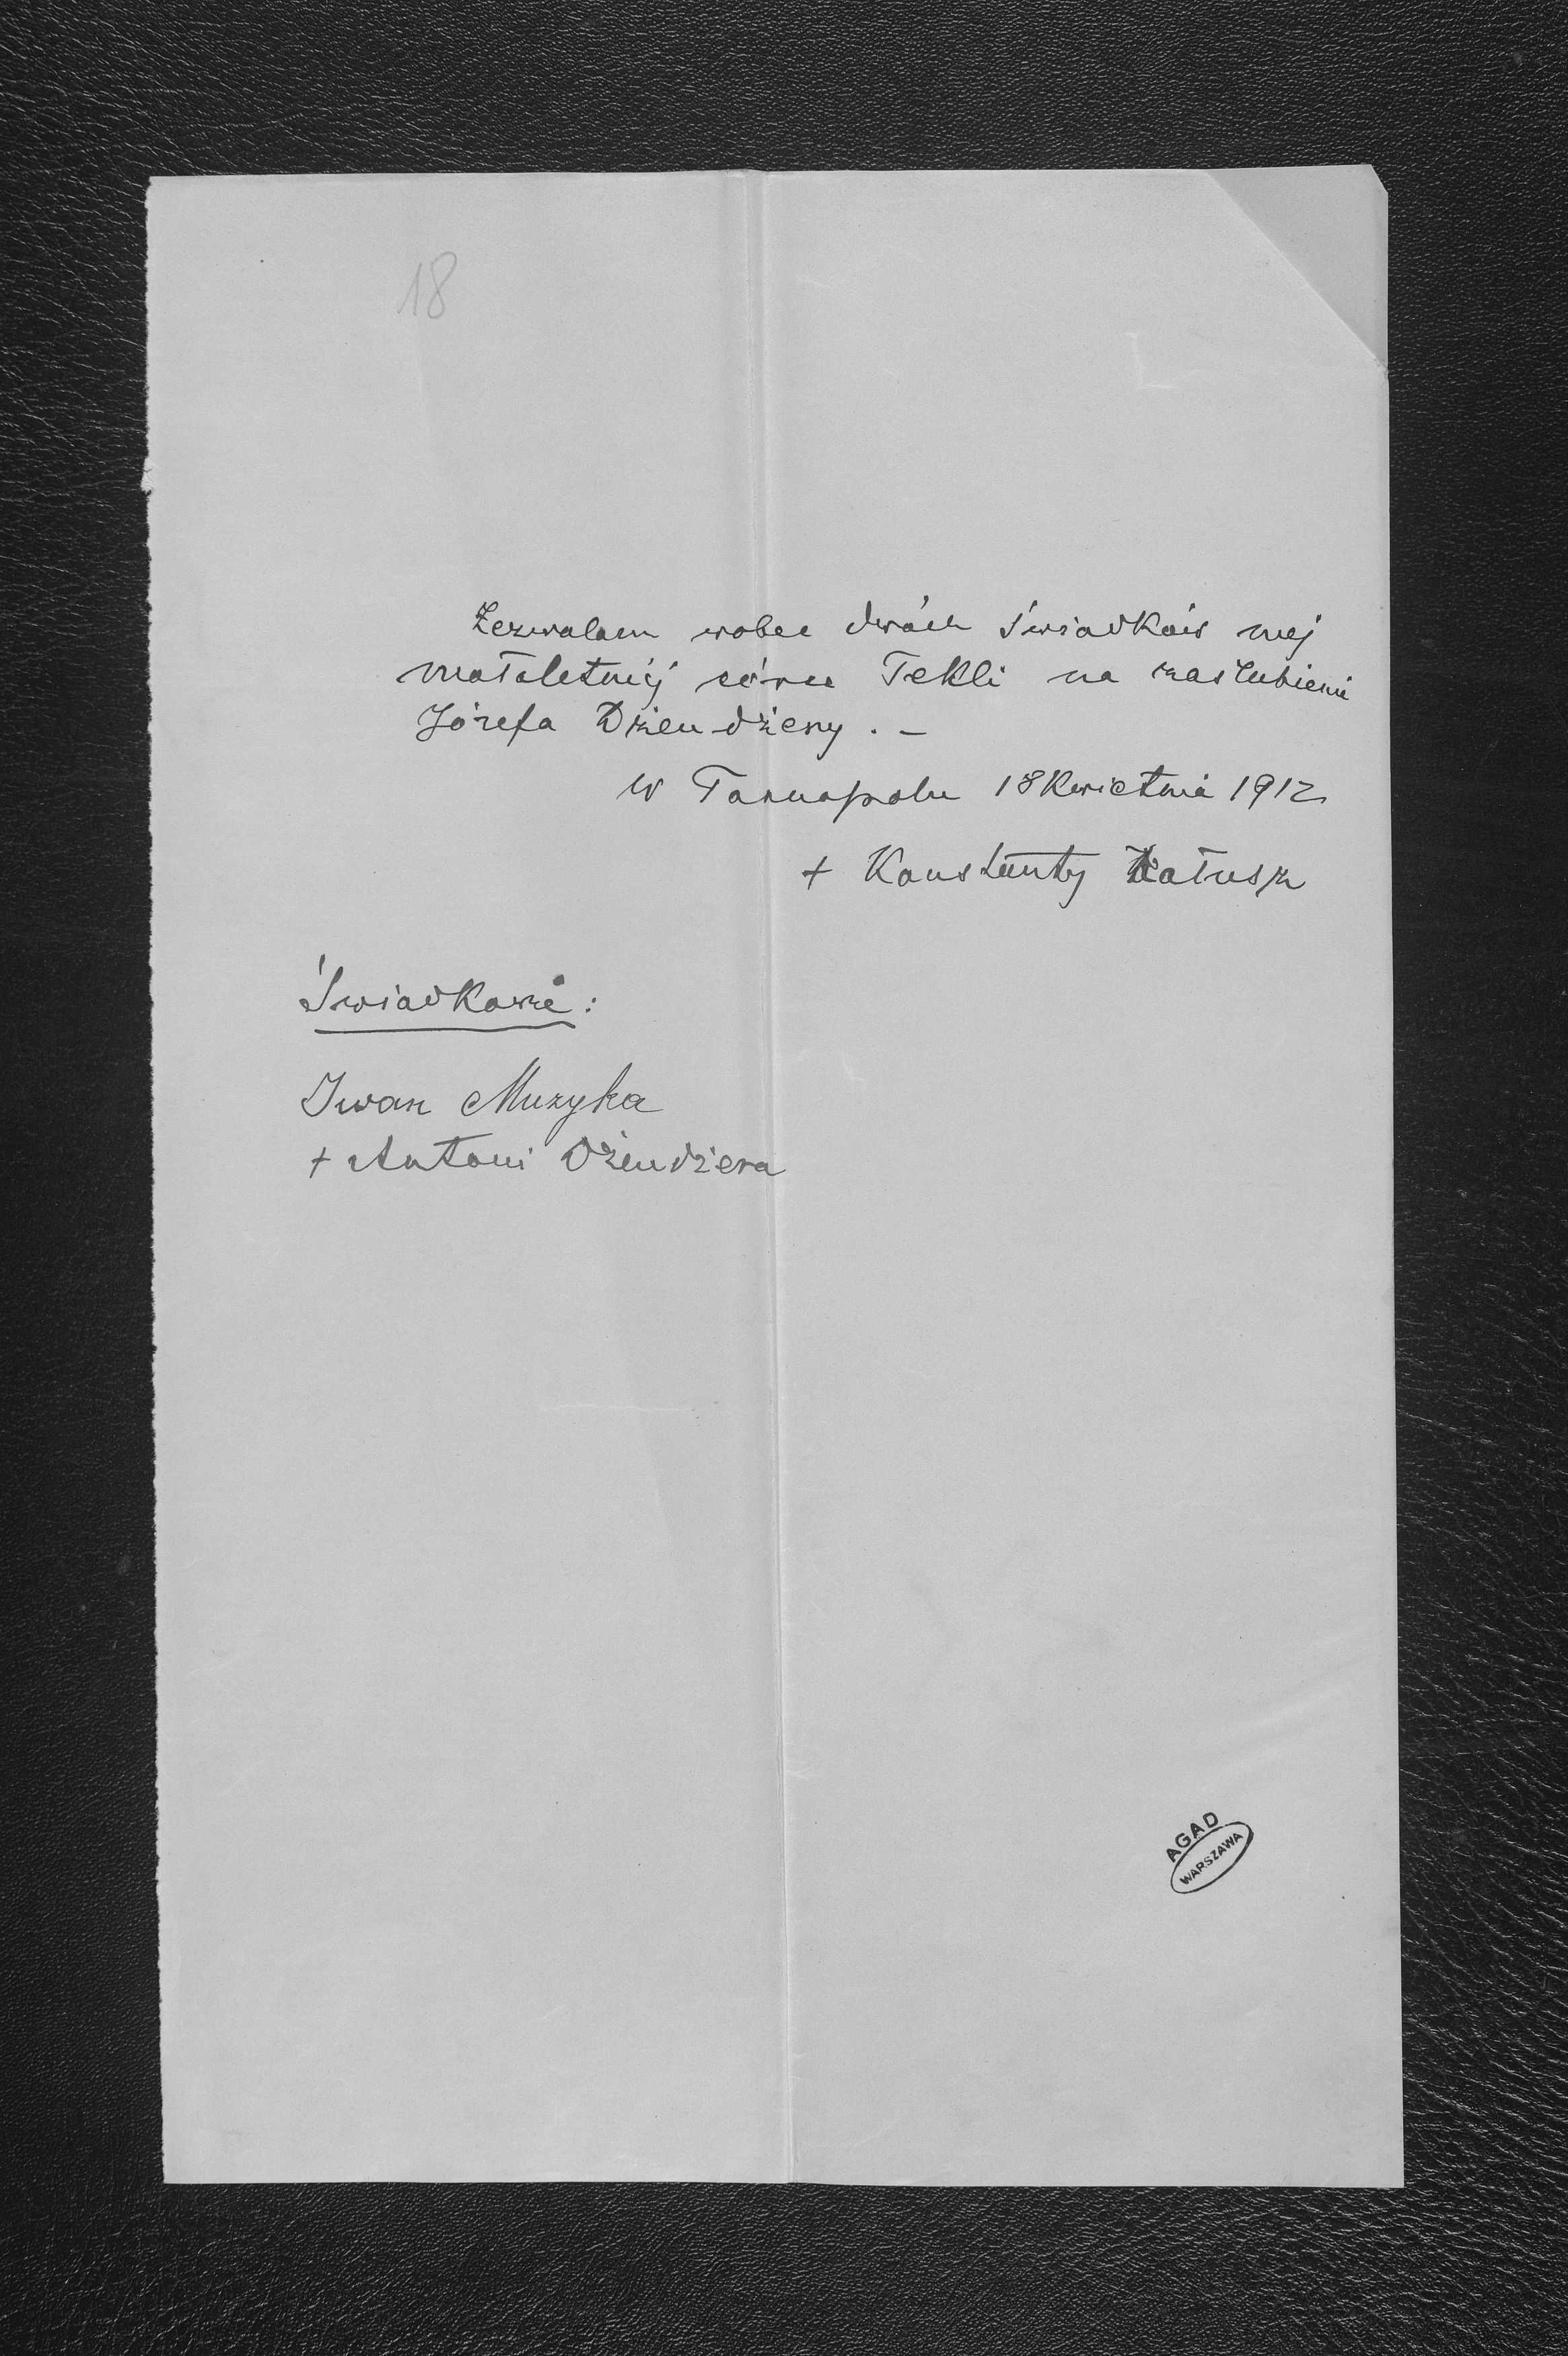 18
Zezwalam wobec dwóch świadków mej
małoletniéj córce Tekli na zaślubienie
Józefa Dziendziery . –
w Tarnopolu 18 Kwietnia 1912
+ Konstanty
Świadkowie :
Iwan Muzyka
+ Antoni Dziendziera
AGAD
WARSZAWA